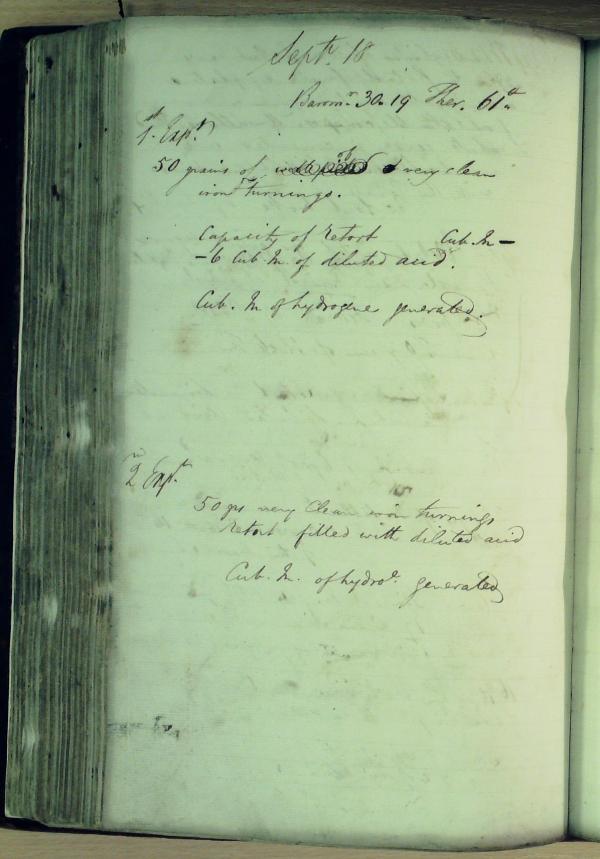 Septr. 18
Baromr. 30.19 Ther. 61°
1st. Expt.
50 grains of very clean
iron turnings.
Capacity of retort Cub. In —
- 6 Cub In of diluted acid.
Cub. In of hydrogene generated.
2nd Expt.
50 grs very Clean iron turnings
retort filled with diluted acid
Cub. In. of hydroe. generated